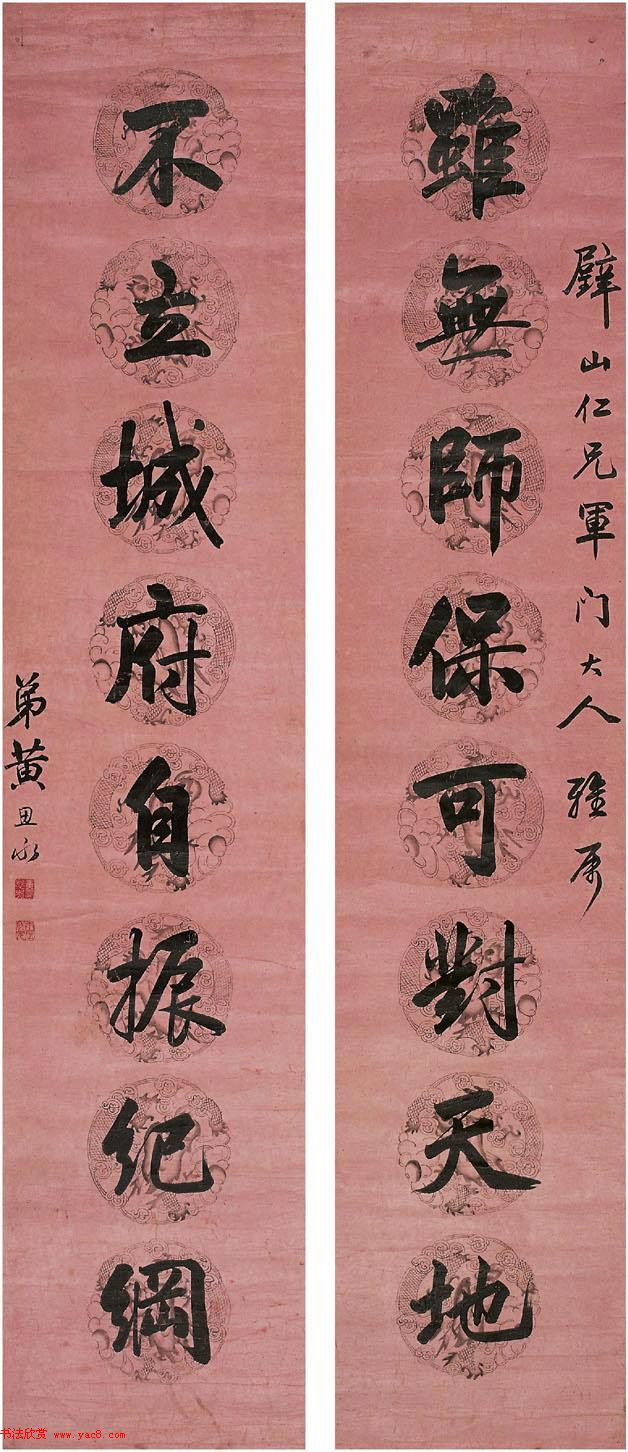 璧山仁兄軍门大人 雅属
雖無師保可對天地
不立城府自振纪綱
弟黄思永
书法欣赏 www.yac8.com